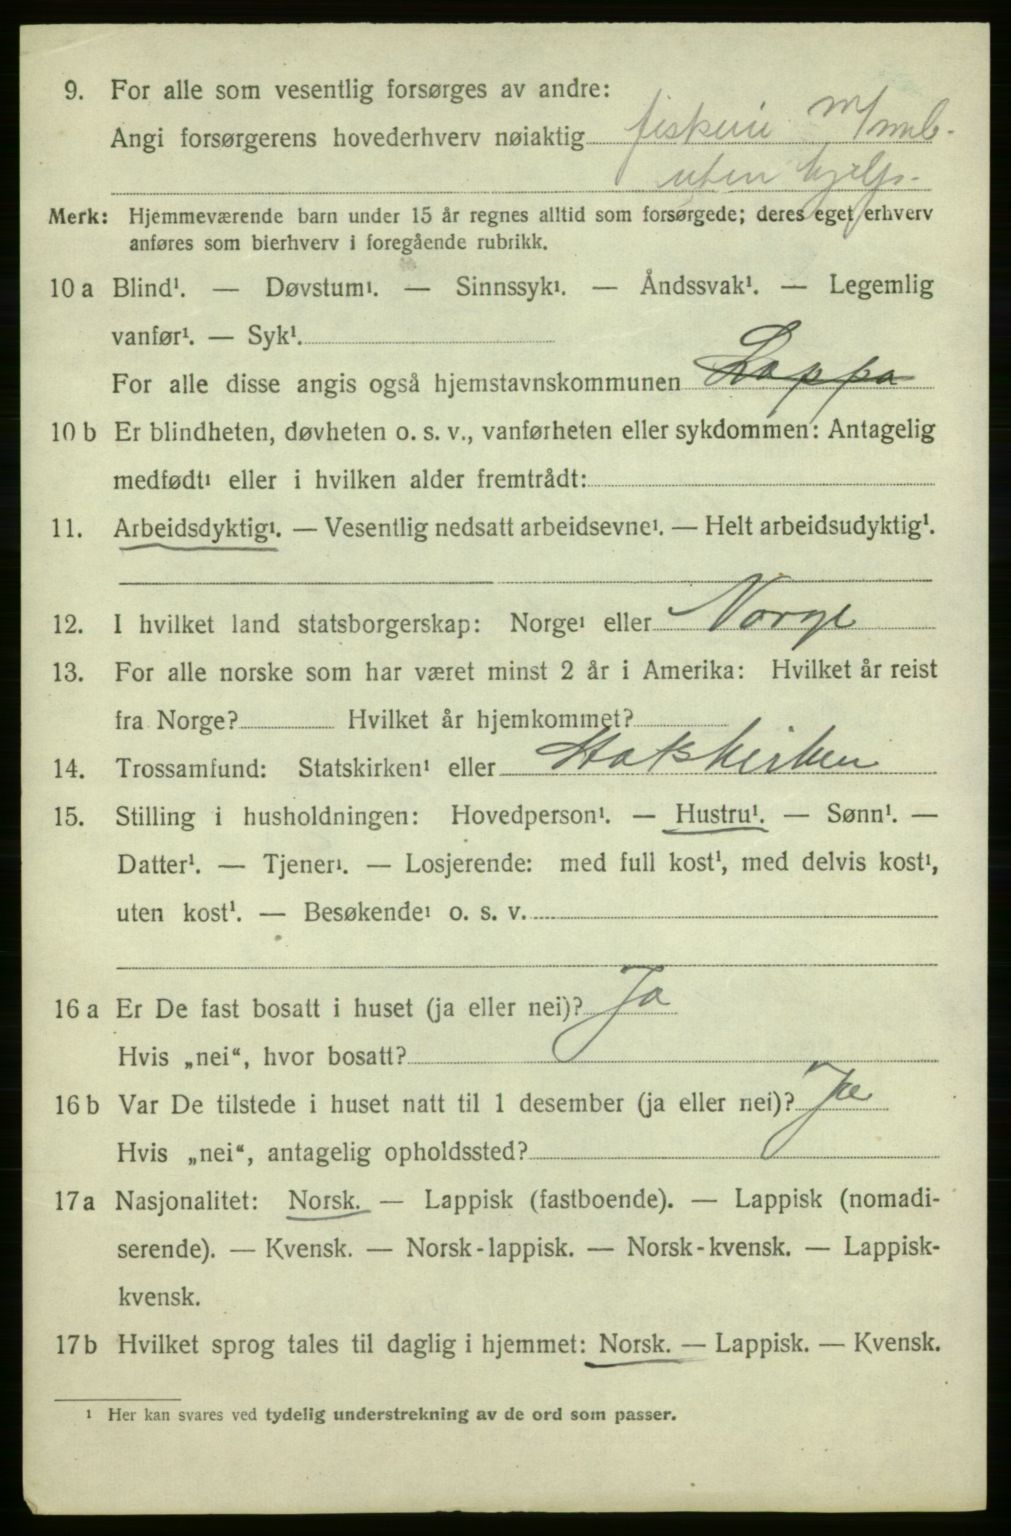 9. For alle som vesentlig forsørges av andre:
Angi forsørgerens hovederhverv nøiaktig fiskeri m/mb.
uten hjelp.
Merk: Hjemmeværende barn under 15 år regnes alltid som forsørgede; deres eget erhverv
anføres som bierhverv i foregående rubrikk.
10 a Blind¹. — Døvstum¹. — Sinnssyk¹. — Åndssvak¹. — Legemlig
vanfør¹. — Syk¹.
For alle disse angis også hjemstavnskommunen Loppa
10 b Er blindheten, døvheten o. s. v., vanførheten eller sykdommen: Antagelig
medfødt¹ eller i hvilken alder fremtrådt:
11. Arbeidsdyktig¹. — Vesentlig nedsatt arbeidsevne¹. — Helt arbeidsudyktig¹.
12. I hvilket land statsborgerskap: Norge¹ eller Norge
13. For alle norske som har været minst 2 år i Amerika: Hvilket år reist
fra Norge? Hvilket år hjemkommet?
14. Trossamfund: Statskirken¹ eller Statskirken
15. Stilling i husholdningen: Hovedperson¹. — Hustru¹. — Sønn¹. —
Datter¹. — Tjener¹. — Losjerende: med full kost¹, med delvis kost¹,
uten kost¹. — Besøkende¹ o. s. v.
16 a Er De fast bosatt i huset (ja eller nei)? Ja
Hvis „nei“, hvor bosatt?
16 b Var De tilstede i huset natt til 1 desember (ja eller nei)? Ja
Hvis „nei“, antagelig opholdssted?
17 a Nasjonalitet: Norsk. — Lappisk (fastboende). — Lappisk (nomadi-
serende). — Kvensk. — Norsk-lappisk. — Norsk-kvensk. — Lappisk-
kvensk.
17 b Hvilket sprog tales til daglig i hjemmet: Norsk. — Lappisk. — Kvensk.
¹ Her kan svares ved tydelig understrekning av de ord som passer.